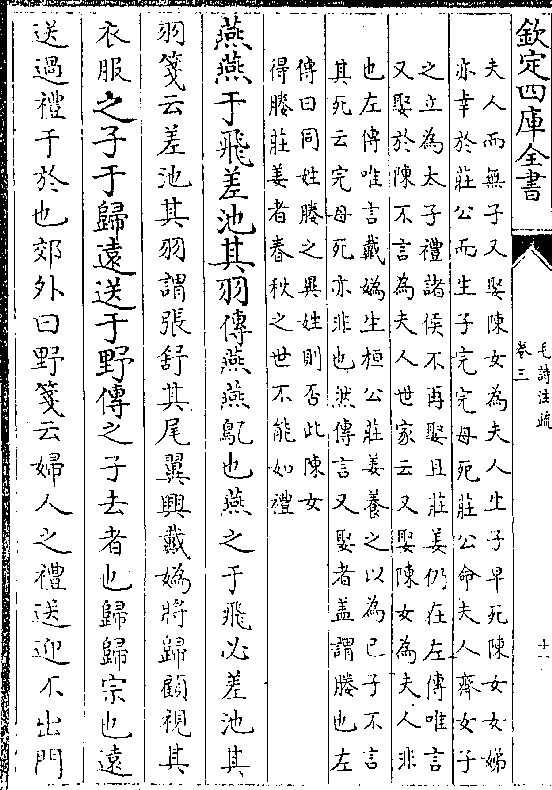 欽定四庫全書
毛詩注疏
卷三
十一
夫人而無子又娶陳女為夫人生子早死陳女女娣
亦幸於莊公而生子完完母死莊公命夫人齊女子
之立為太子禮諸侯不再娶且莊姜仍在左傳唯言
又娶於陳不言為夫人世家云又娶陳女為夫人非
也左傳唯言戴媯生桓公莊姜養之以為已子不言
其死云完母死亦非也然傳言又娶者蓋謂媵也左
傳曰同姓媵之異姓則否此陳女
得媵莊姜者春秋之世不能如禮
燕燕于飛差池其羽傳燕燕鳦也燕之于飛必差池其
羽箋云差池其羽謂張舒其尾翼興戴媯將歸顧視其
衣服之子于歸遠送于野傳之子去者也歸歸宗也遠
送過禮于於也郊外曰野箋云婦人之禮送迎不出門